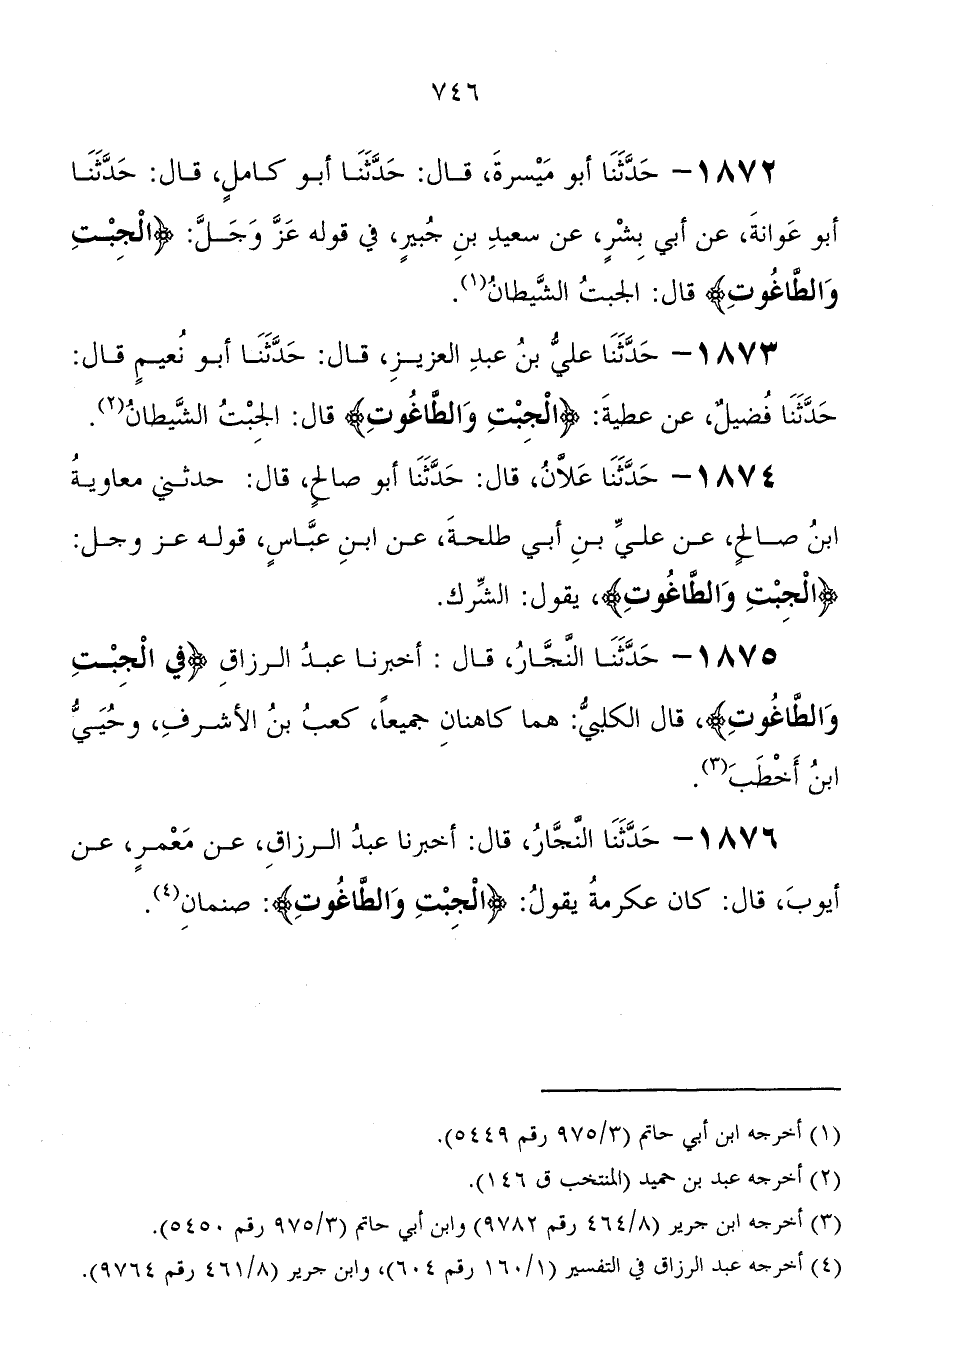 ٧٤٦
١٨٧٢- حَدَّثَنَا أبو مَيْسرةَ، قال: حَدَّثَنَا أبو كاملٍ، قال: حَدَّثَنَا
أبو عَوانةَ، عن أبي بِشْرٍ، عن سعيدِ بنِ جُبيرٍ، في قوله عَزَّ وَجَلَّ: ﴿الْجِبْتِ
وَالطَّاغُوتِ﴾ قال: الجبتُ الشَّيطانُ(١).
١٨٧٣- حَدَّثَنَا عليُّ بنُ عبدِ العزيزِ، قال: حَدَّثَنَا أبو نُعيمٍ قال:
حَدَّثَنَا فُضيلٌ، عن عطيةَ: ﴿الْجِبْتِ وَالطَّاغُوتِ﴾ قال: الجِبْتُ الشَّيطانُ(٢).
١٨٧٤- حَدَّثَنَا عَلاَّنُ، قال: حَدَّثَنَا أبو صالحٍ، قال: حدثني معاويةُ
ابنُ صالحٍ، عن عليِّ بنِ أبي طلحةَ، عن ابنِ عبَّاسٍ، قوله عز وجل:
﴿الْجِبْتِ وَالطَّاغُوتِ﴾، يقول: الشِّرك.
١٨٧٥- حَدَّثَنَا النَّجَّارُ، قال : أخبرنا عبدُ الرزاقِ ﴿في الْجِبْتِ
وَالطَّاغُوتِ﴾، قال الكلبيُّ: هما كاهنانِ جميعاً، كعبُ بنُ الأشرفِ، وحُيَيُّ
ابنُ أَخْطَبَ(٣).
١٨٧٦- حَدَّثَنَا النَّجَّارُ، قال: أخبرنا عبدُ الرزاقِ، عن مَعْمرٍ، عن
أيوبَ، قال: كان عكرمةُ يقولُ: ﴿الْجِبْتِ وَالطَّاغُوتِ﴾: صنمانِ(٤).
(١) أخرجه ابن أبي حاتم (٩٧٥/٣ رقم ٥٤٤٩).
(٢) أخرجه عبد بن حميد (المنتخب ق ١٤٦).
(٣) أخرجه ابن جرير (٤٦٤/٨ رقم ٩٧٨٢) وابن أبي حاتم (٩٧٥/٣ رقم ٥٤٥٠).
(٤) أخرجه عبد الرزاق في التفسير (١٦٠/١ رقم ٦٠٤)، وابن جرير (٤٦١/٨ رقم ٩٧٦٤).